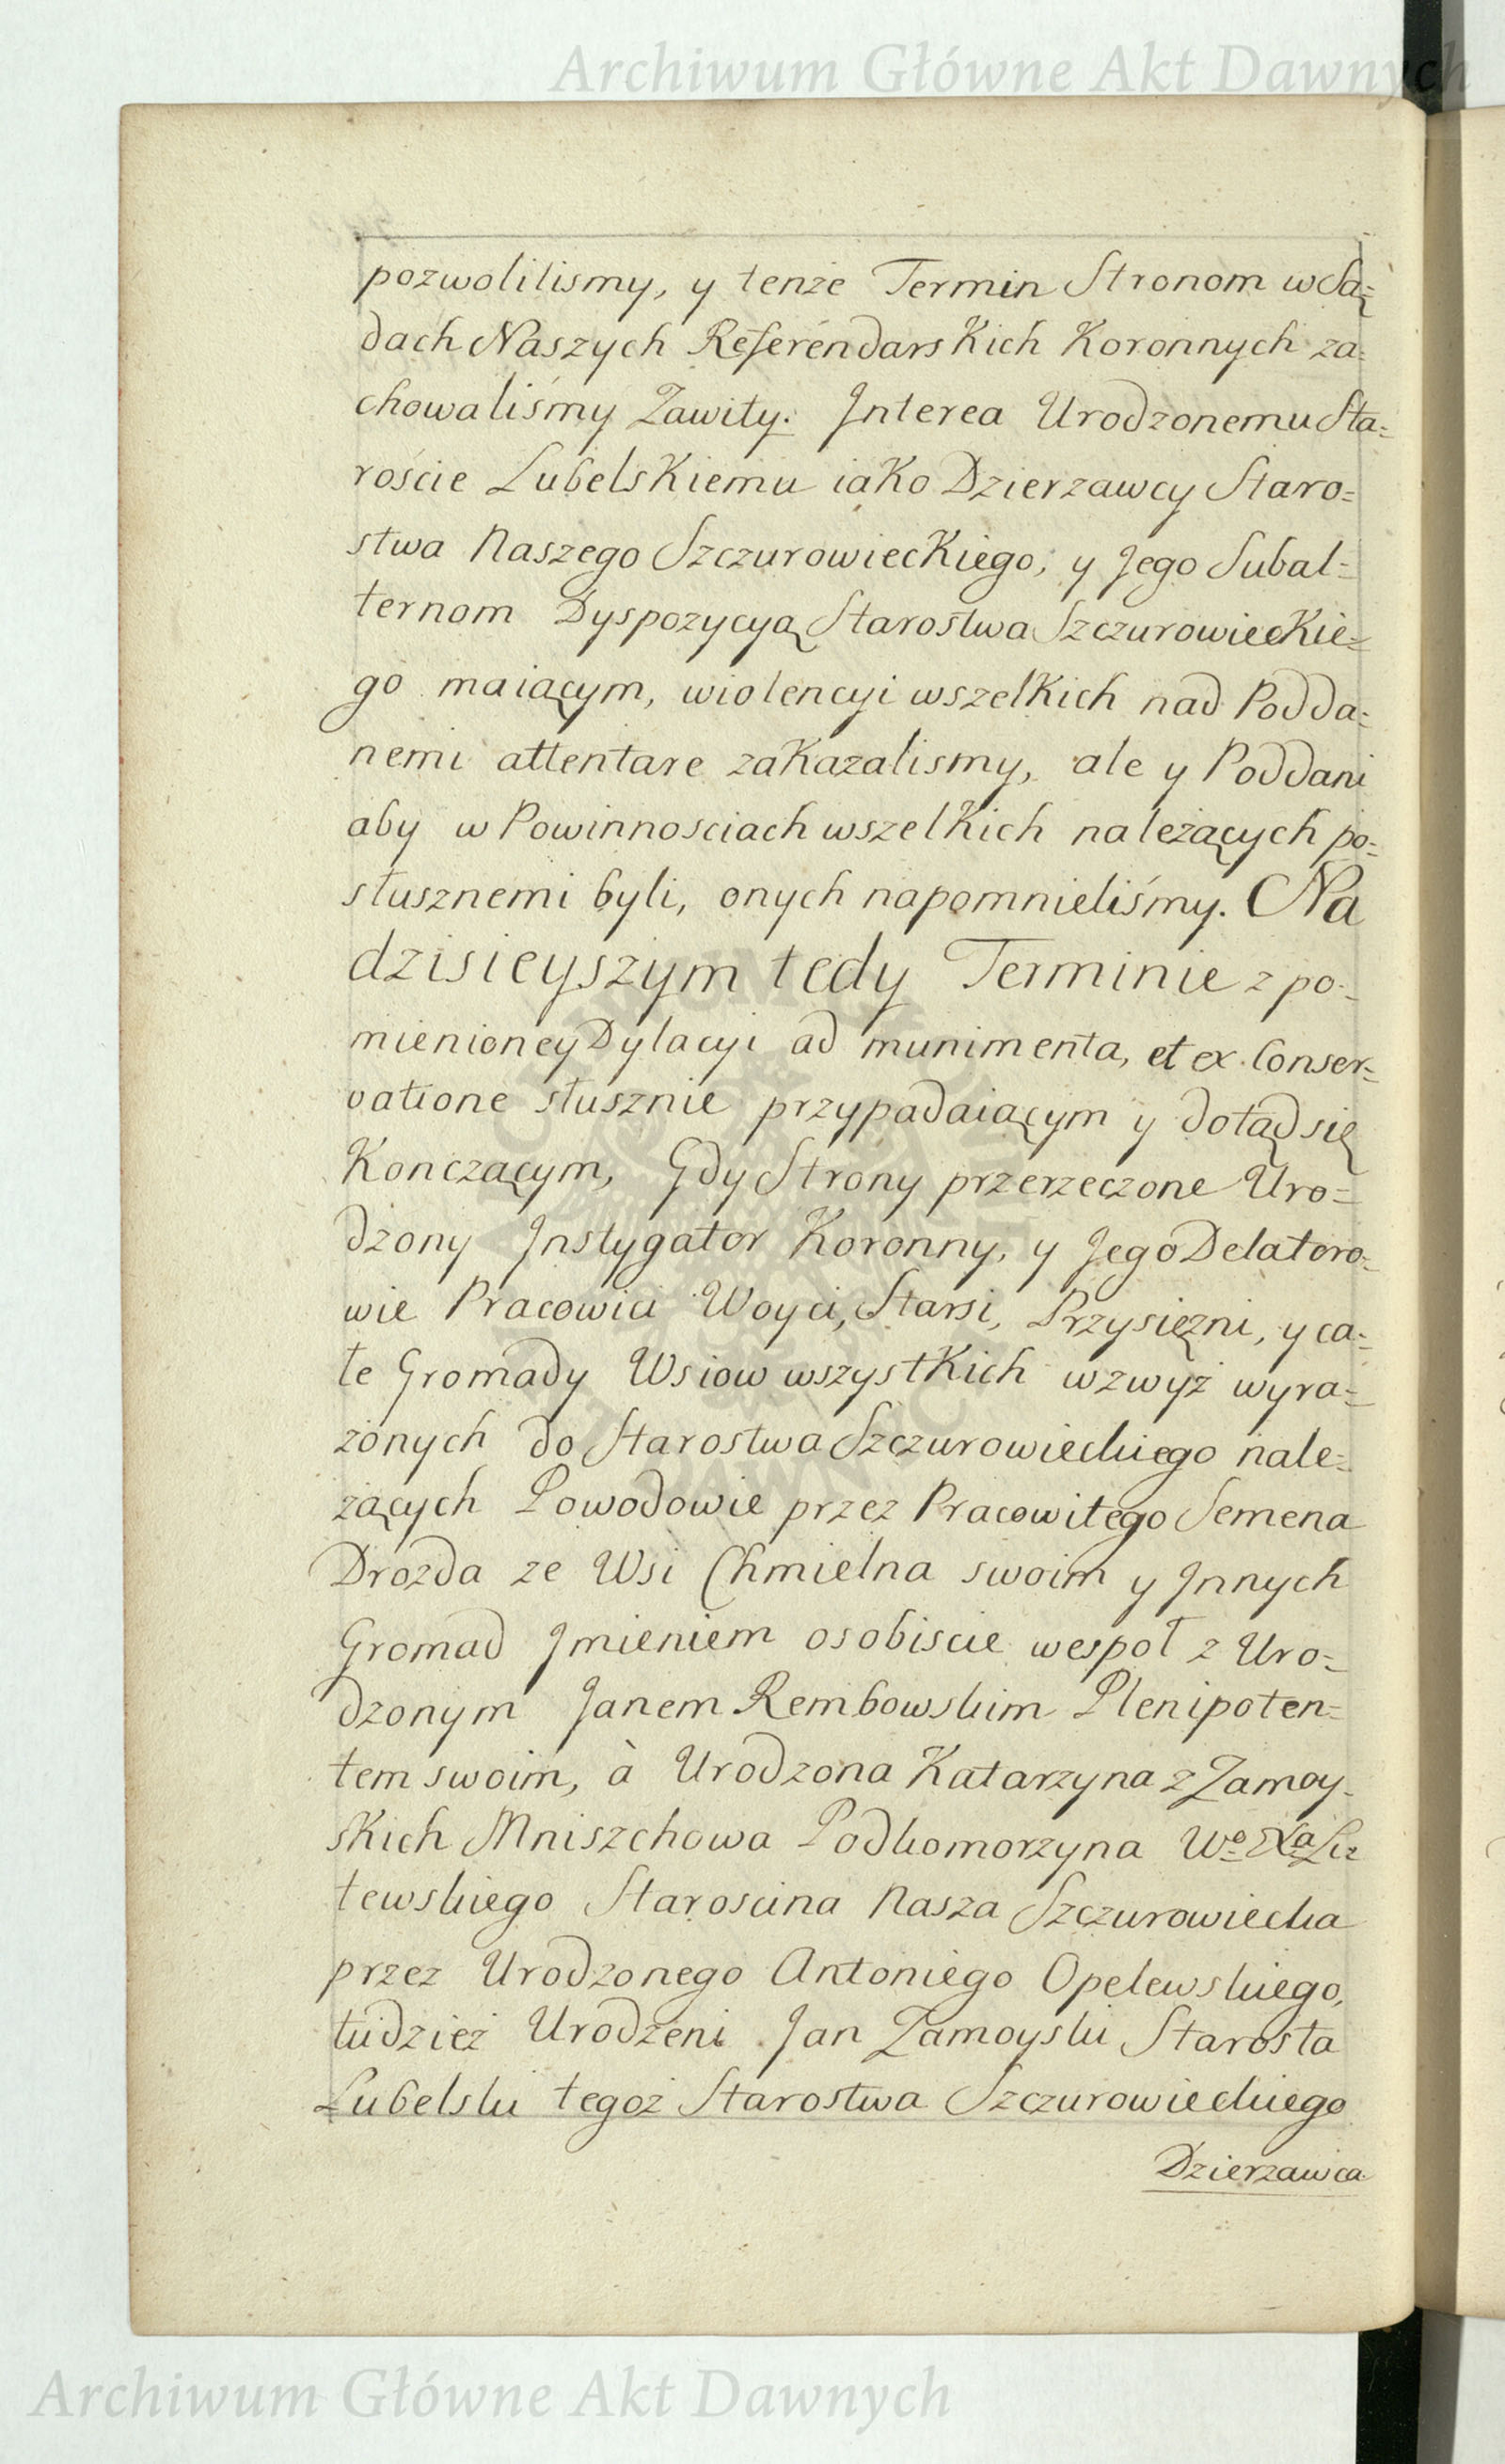 Archiwum Główne Akt Dawnych
pozwolilismy, y tenże Termin Stronom w Są=
dach Naszych Referendarskich Koronnych za=
chowaliśmy Zawity. Interea Urodzonemu Sta=
roście Lubelskiemu iako Dzierzawcy Staro=
stwa Naszego Szczurowieckiego, y Jego Subal=
ternom Dyspozycyą Starostwa Szczurowieckie=
go maiącym, wiolencyi wszelkich nad Podda=
nemi attentare zakazalismy, ale y Poddani
aby w Powinnosciach wszelkich należących po=
słusznemi byli, onych napomnieliśmy. Na
dzisieyszym tedy Terminie z po=
mienioney Dylacyi ad munimenta, et ex Conser=
vatione słusznie przypadaiącym y dotąd się
Konczącym, Gdy Strony przerzeczone Uro=
dzony Instygator Koronny, y Jego Delatoro=
wie Pracowici Woyci, Starsi, Przysięzni, y ca=
łe Gromady Wsiow wszystkich wzwyż wyra=
zonych do Starostwa Szczurowieckiego nale=
żących Powodowie przez Pracowitego Semena
Drozda ze Wsi Chmielna swoim y Innych
Gromad Imieniem osobiscie wespoł z Uro=
dzonym Janem Rembowskim Plenipoten=
tem swoim, à Urodzona Katarzyna z Zamoy=
skich Mniszchowa Podkomorzyna Wo Xa Li=
tewskiego Staroscina Nasza Szczurowiecka
przez Urodzonego Antoniego Opelewskiego,
tudzież Urodzeni Jan Zamoyski Starosta
Lubelski tegoż Starostwa Szczurowieckiego
Dzierzawca
Archiwum Główne Akt Dawnych